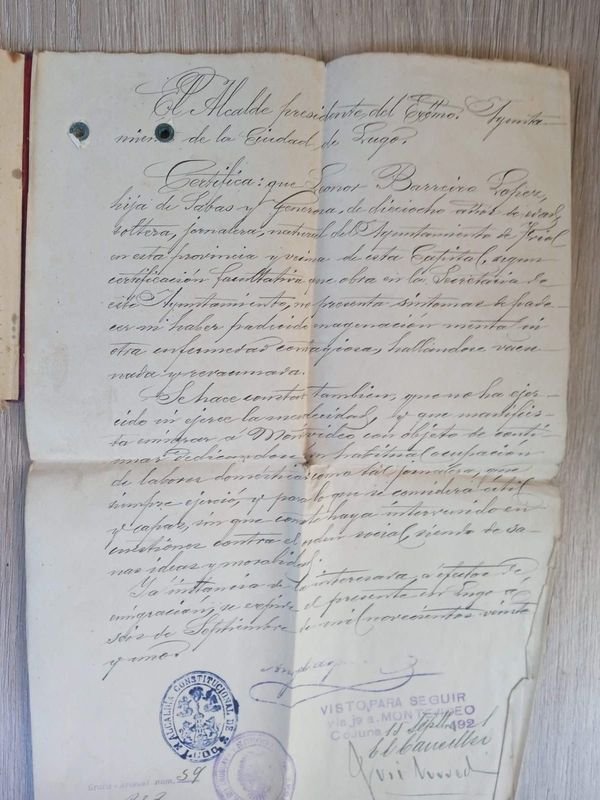 El Alcalde presidente del Excmo. Ayunta-
miento de la Ciudad de Lugo.
Certifica: que Leonor Barreiro Lopez,
hija de Sabas y Generosa, de dieciocho años de edad,
soltera, jornalera, natural del Ayuntamiento de Friol
en esta provincia y vecina de esta Capital, segun
certificación facultativa que obra en la Secretaria de
este Ayuntamiento, no presenta sintomas de pade-
cer ni haber padecido enagenación mental ni
otra enfermedad contagiosa, hallándose vacu-
nada y revacunada.
Se hace constar tambien, que no ha ejer-
cido ni ejerce la mendicidad, y que manifies-
ta emigrar a Montvideo con objeto de conti-
nuar dedicandose su habitual ocupacion
de labores domésticas como tal jornalera, que
siempre ejerció, y para lo que se considera útil
y capaz, sin que conste haya intervenido en
cuestiones contra el orden social, siendo de sa-
nas ideas y moralidad.
Y a instancia de la interesada, a efectos de
emigracion, se expide el presente en Lugo a,
de Septiembre de mil novecientos veinte
y uno.
ALCALDIA CONSTITUCIONAL DE LUGO
VISTO, PARA SEGUIR
viaje a MONTEVIDEO
Coruña 15 Septbre 1921
El Canciller
núm. 59